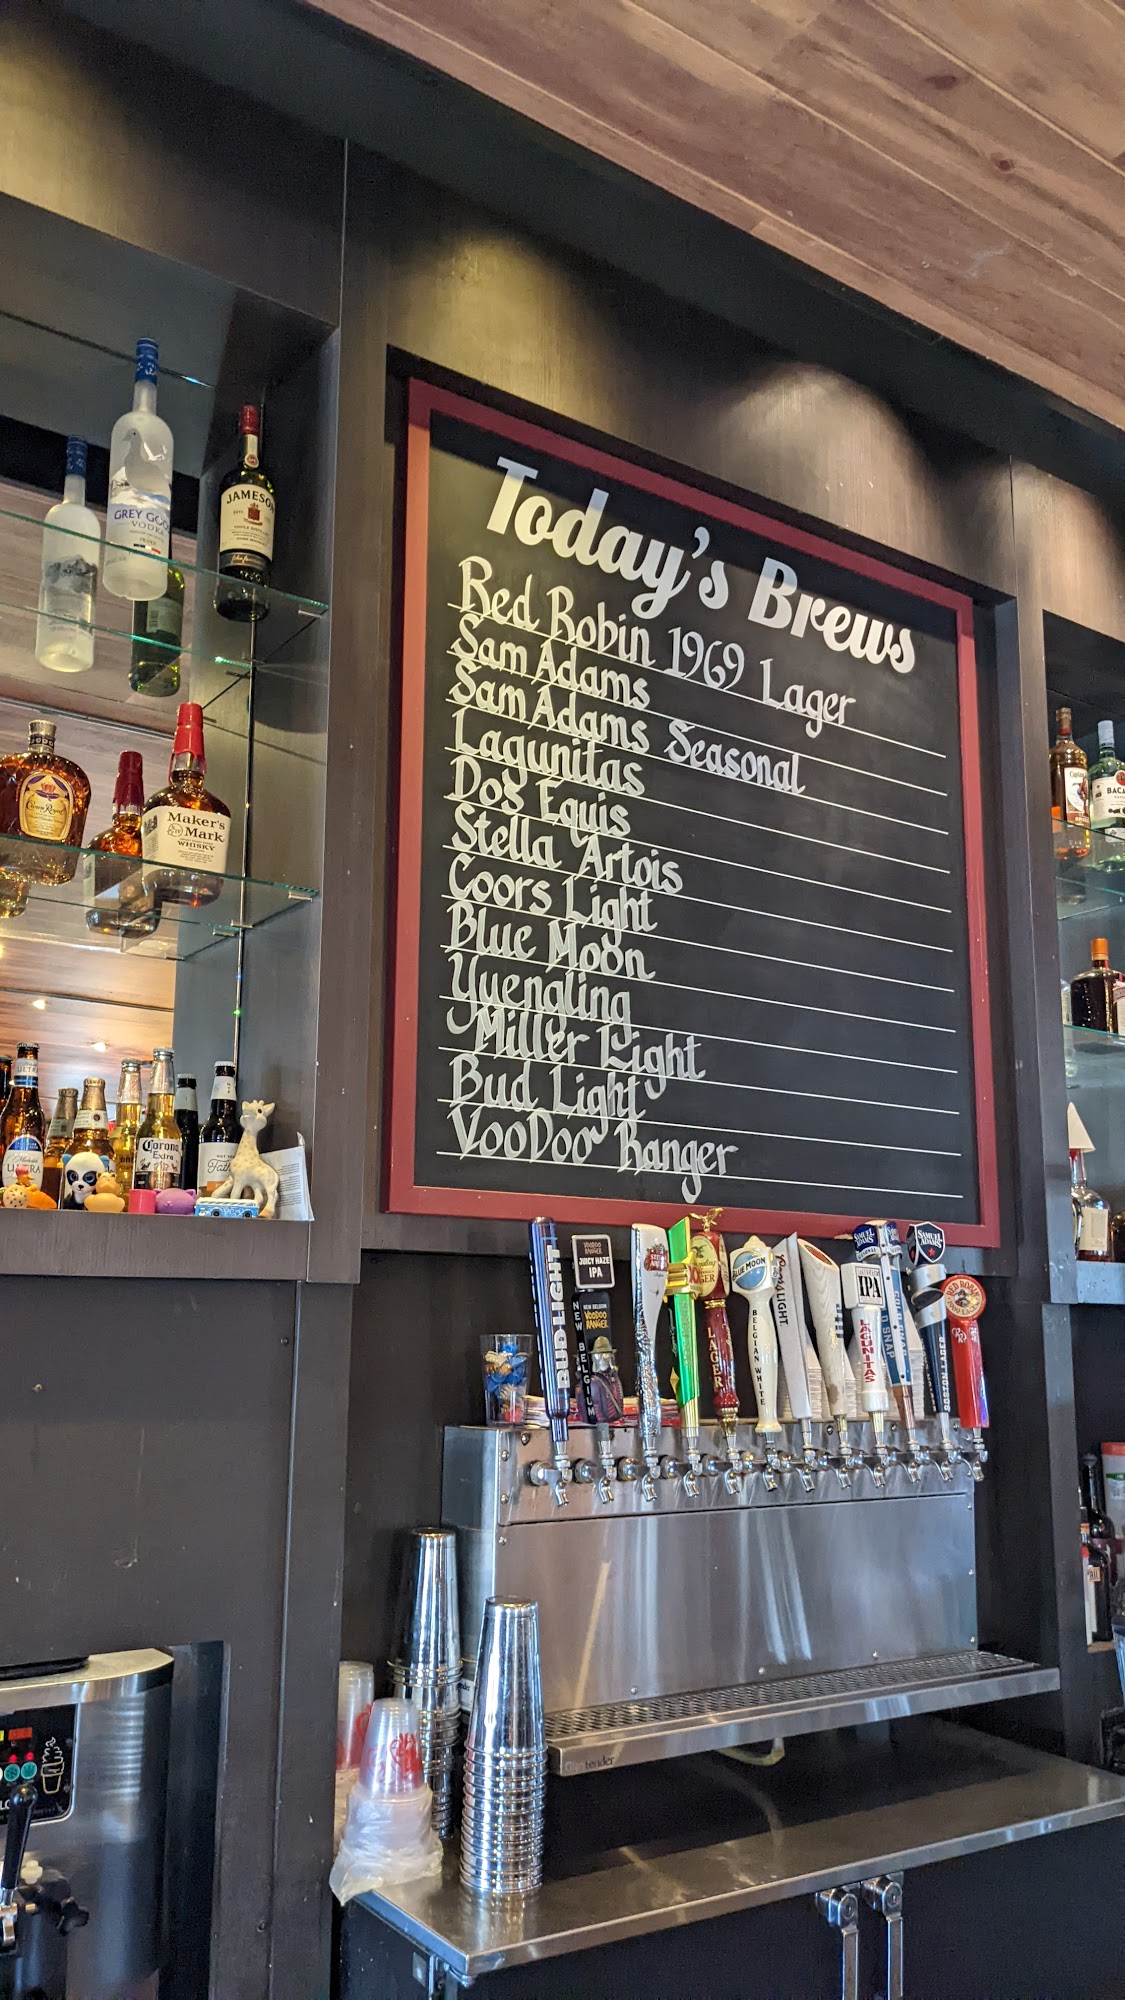 Today's Brews
Red Robin 1969 Lager
Sam Adams
Sam Adams Seasonal
Lagunitas
Dos Equis
Stella Artois
Coors Light
Blue Moon
Yuengling
Miller Light
Bud Light
VooDoo Ranger
GREY GOO
VODKA
JAMESON
Crown Royal
Maker's
Mark
WHISKY
ULTRA
Corona
Extra
BACA
BUD LIGHT
VOODOO
RANGER
JUICY HAZE
IPA
NEW BELGIUM
VOODOO
RANGER
LAGER
BLUE MOON
BELGIAN WHITE
LIGHT
IPA
LAGUNITAS
SAMUEL
ADAMS
COLD SNAP
SAMUEL
ADAMS
BOSTON LAGER
RED ROBIN
tender